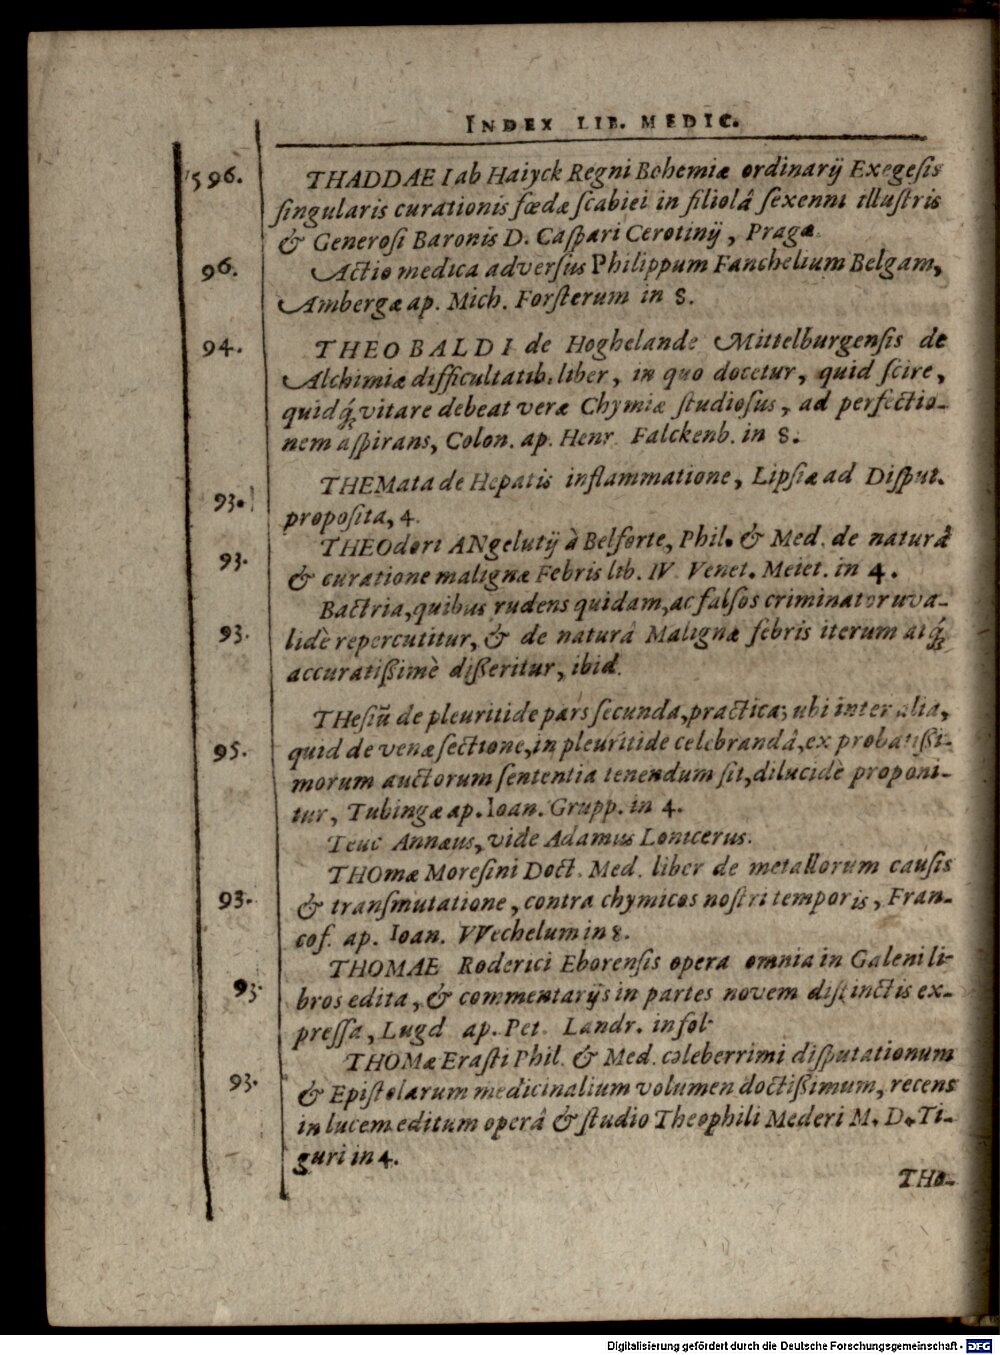 INDEX LIB. MEDIC.
1596. THADDAE I ab Haiyck Regni Bohemiæ ordinarij Exegesis
singularis curationis fœdæ scabiei in filiolâ sexenni illustris
& Generosi Baronis D. Caspari Cerotinij, Pragæ.
96. Actio medica adversus Philippum Fanchelium Belgam,
Ambergæ ap. Mich. Forsterum in 8.
94. THEOBALDI de Hoghelande Mittelburgensis de
Alchimiæ difficultatib. liber, in quo docetur, quid scire,
quidq́; vitare debeat veræ Chymiæ studiosus, ad perfectio-
nem aspirans, Colon. ap. Henr. Falckenb. in 8.
THEMata de Hepatis inflammatione, Lipsiæ ad Disput.
93. proposita, 4.
THEOdori ANgelutij à Belforte, Phil. & Med. de naturâ
93. & curatione malignæ Febris lib. IV. Venet. Meiet. in 4.
Bactria, quibus rudens quidam, ac falsos criminator uva-
93. lidè repercutitur, & de naturâ Malignæ febris iterum atq́;
accuratißimè disseritur, ibid.
THesiū de pleuritide pars secunda, practica; ubi inter alia,
95. quid de venæ sectione, in pleuritide celebrandâ, ex probatißi-
morum auctorum sententia tenendum sit, dilucidè proponi-
tur, Tubingæ ap. Ioan. Grupp. in 4.
Teuc Annæus, vide Adamus Lonicerus.
THOmæ Moresini Doct. Med. liber de metallorum causis
93. & transmutatione, contra chymicos nostri temporis, Fran-
cof. ap. Ioan. VVechelum in 8.
THOMAE Roderici Eborensis opera omnia in Galeni li-
93. bros edita, & commentarijs in partes novem distinctis ex-
pressa, Lugd ap. Pet. Landr. in fol.
THOMæ Erasti Phil. & Med. celeberrimi disputationum
93. & Epistolarum medicinalium volumen doctißimum, recens
in lucem editum operâ & studio Theophili Mederi M. D. Ti-
guri in 4.
THo-
Digitalisierung gefördert durch die Deutsche Forschungsgemeinschaft - DFG